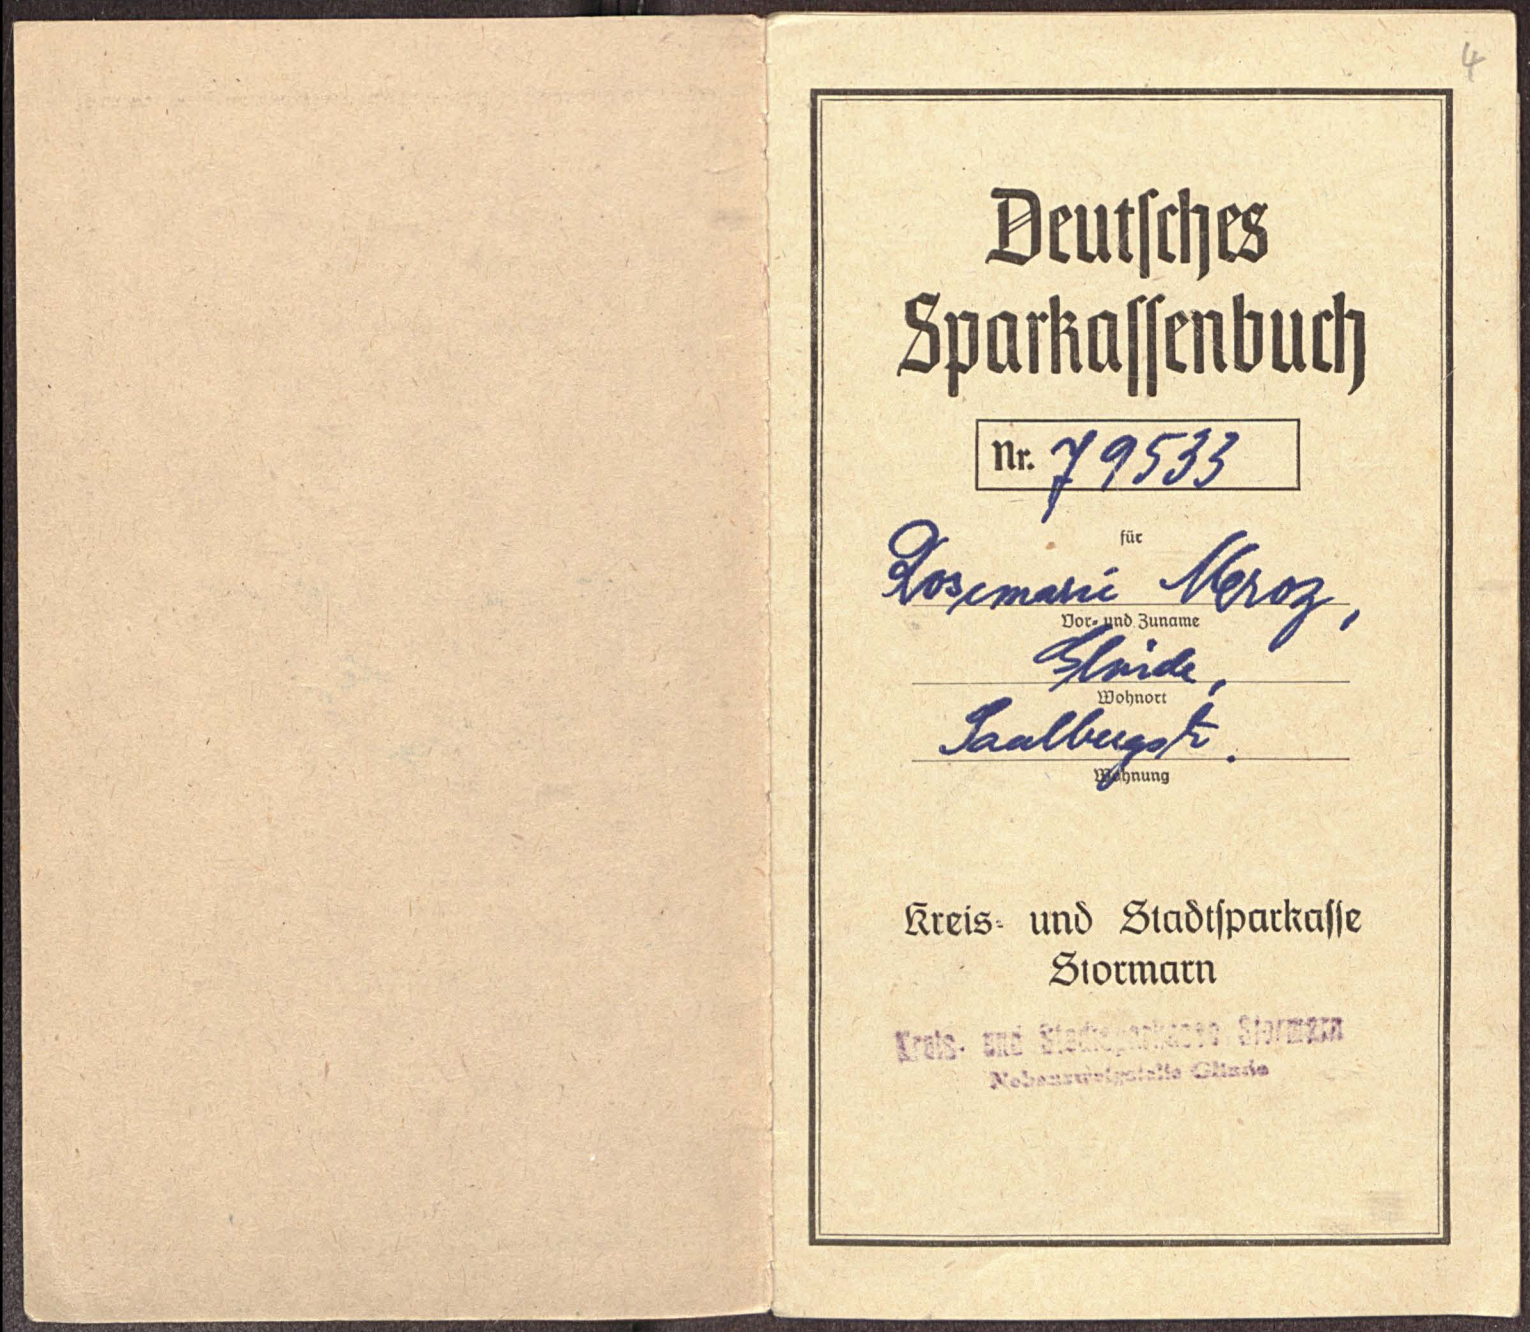 4
Deutsches
Sparkassenbuch
Nr. 79533
für
Rosemarie Mroz,
Vor- und Zuname
Glinde,
Wohnort
Saalbergstr.
Wohnung
Kreis- und Stadtsparkasse
Stormarn
Kreis- und Stadtsparkasse Stormarn
Nebenzweigstelle Glinde